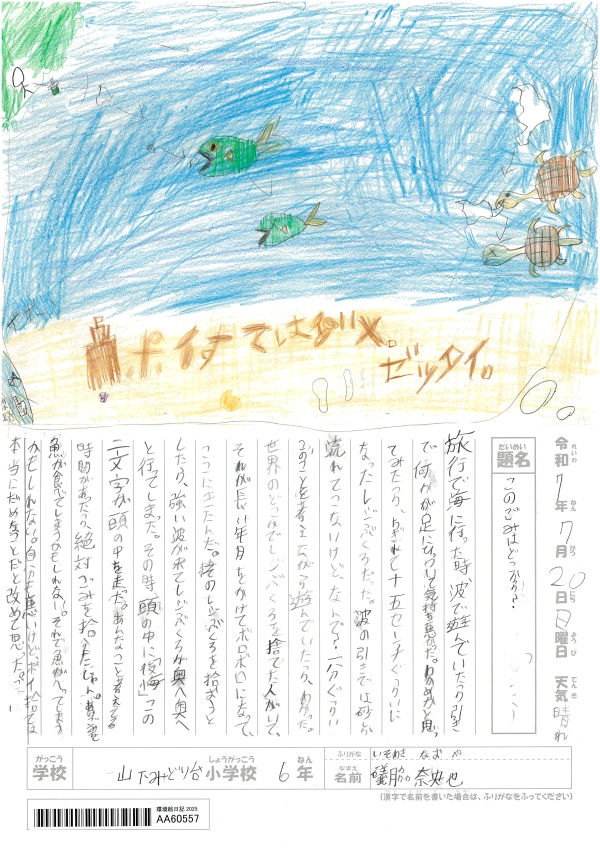 ポイすてはダメ。
ゼッタイ。
令和7年7月20日日曜日 天気 晴れ
れいわ ねん がつ にち ようび てんき
だいめい
題名
このごみはどっから?
旅行で海に行った時、波で遊んでいたり引き
で何かが足にひっついて気持ち悪かった。わかめかと思っ
てみたら、わざれと十五センチぐらいに
なったレジぶくろだった。波の引きでは砂しか
流れてこないけど、なんで?二分ぐらい
このことを考えながら遊んでいたら、わかった。
世界のどこかでレジぶくろを捨てた人がいて、
それが長い年月をかけてボロボロになって、
ここにきたんだ。捨のレジぶくろを拾おうと
したら、強い波が来てレジぶくろが奥へ奥へ
と行ってしまった。その時、頭の中に「後悔」この
二文字が頭の中を走った。あんなこと考えてる
時間があったら、絶対ごみを拾えたじゃん。
魚が食べてしまうかもしれない。それで魚がへってしまう
かもしれない。自分も悪いけどポイ捨ては
本当にだめなことだと改めて思った。
がっこう
学校
山たみどり台
しょうがっこう
小学校
6
ねん
年
ふりがな
いそわき なおや
なまえ
名前
礒脇 奈央也
(漢字で名前を書いた場合は、ふりがなをふってください)
環境絵日記 2025
AA60557